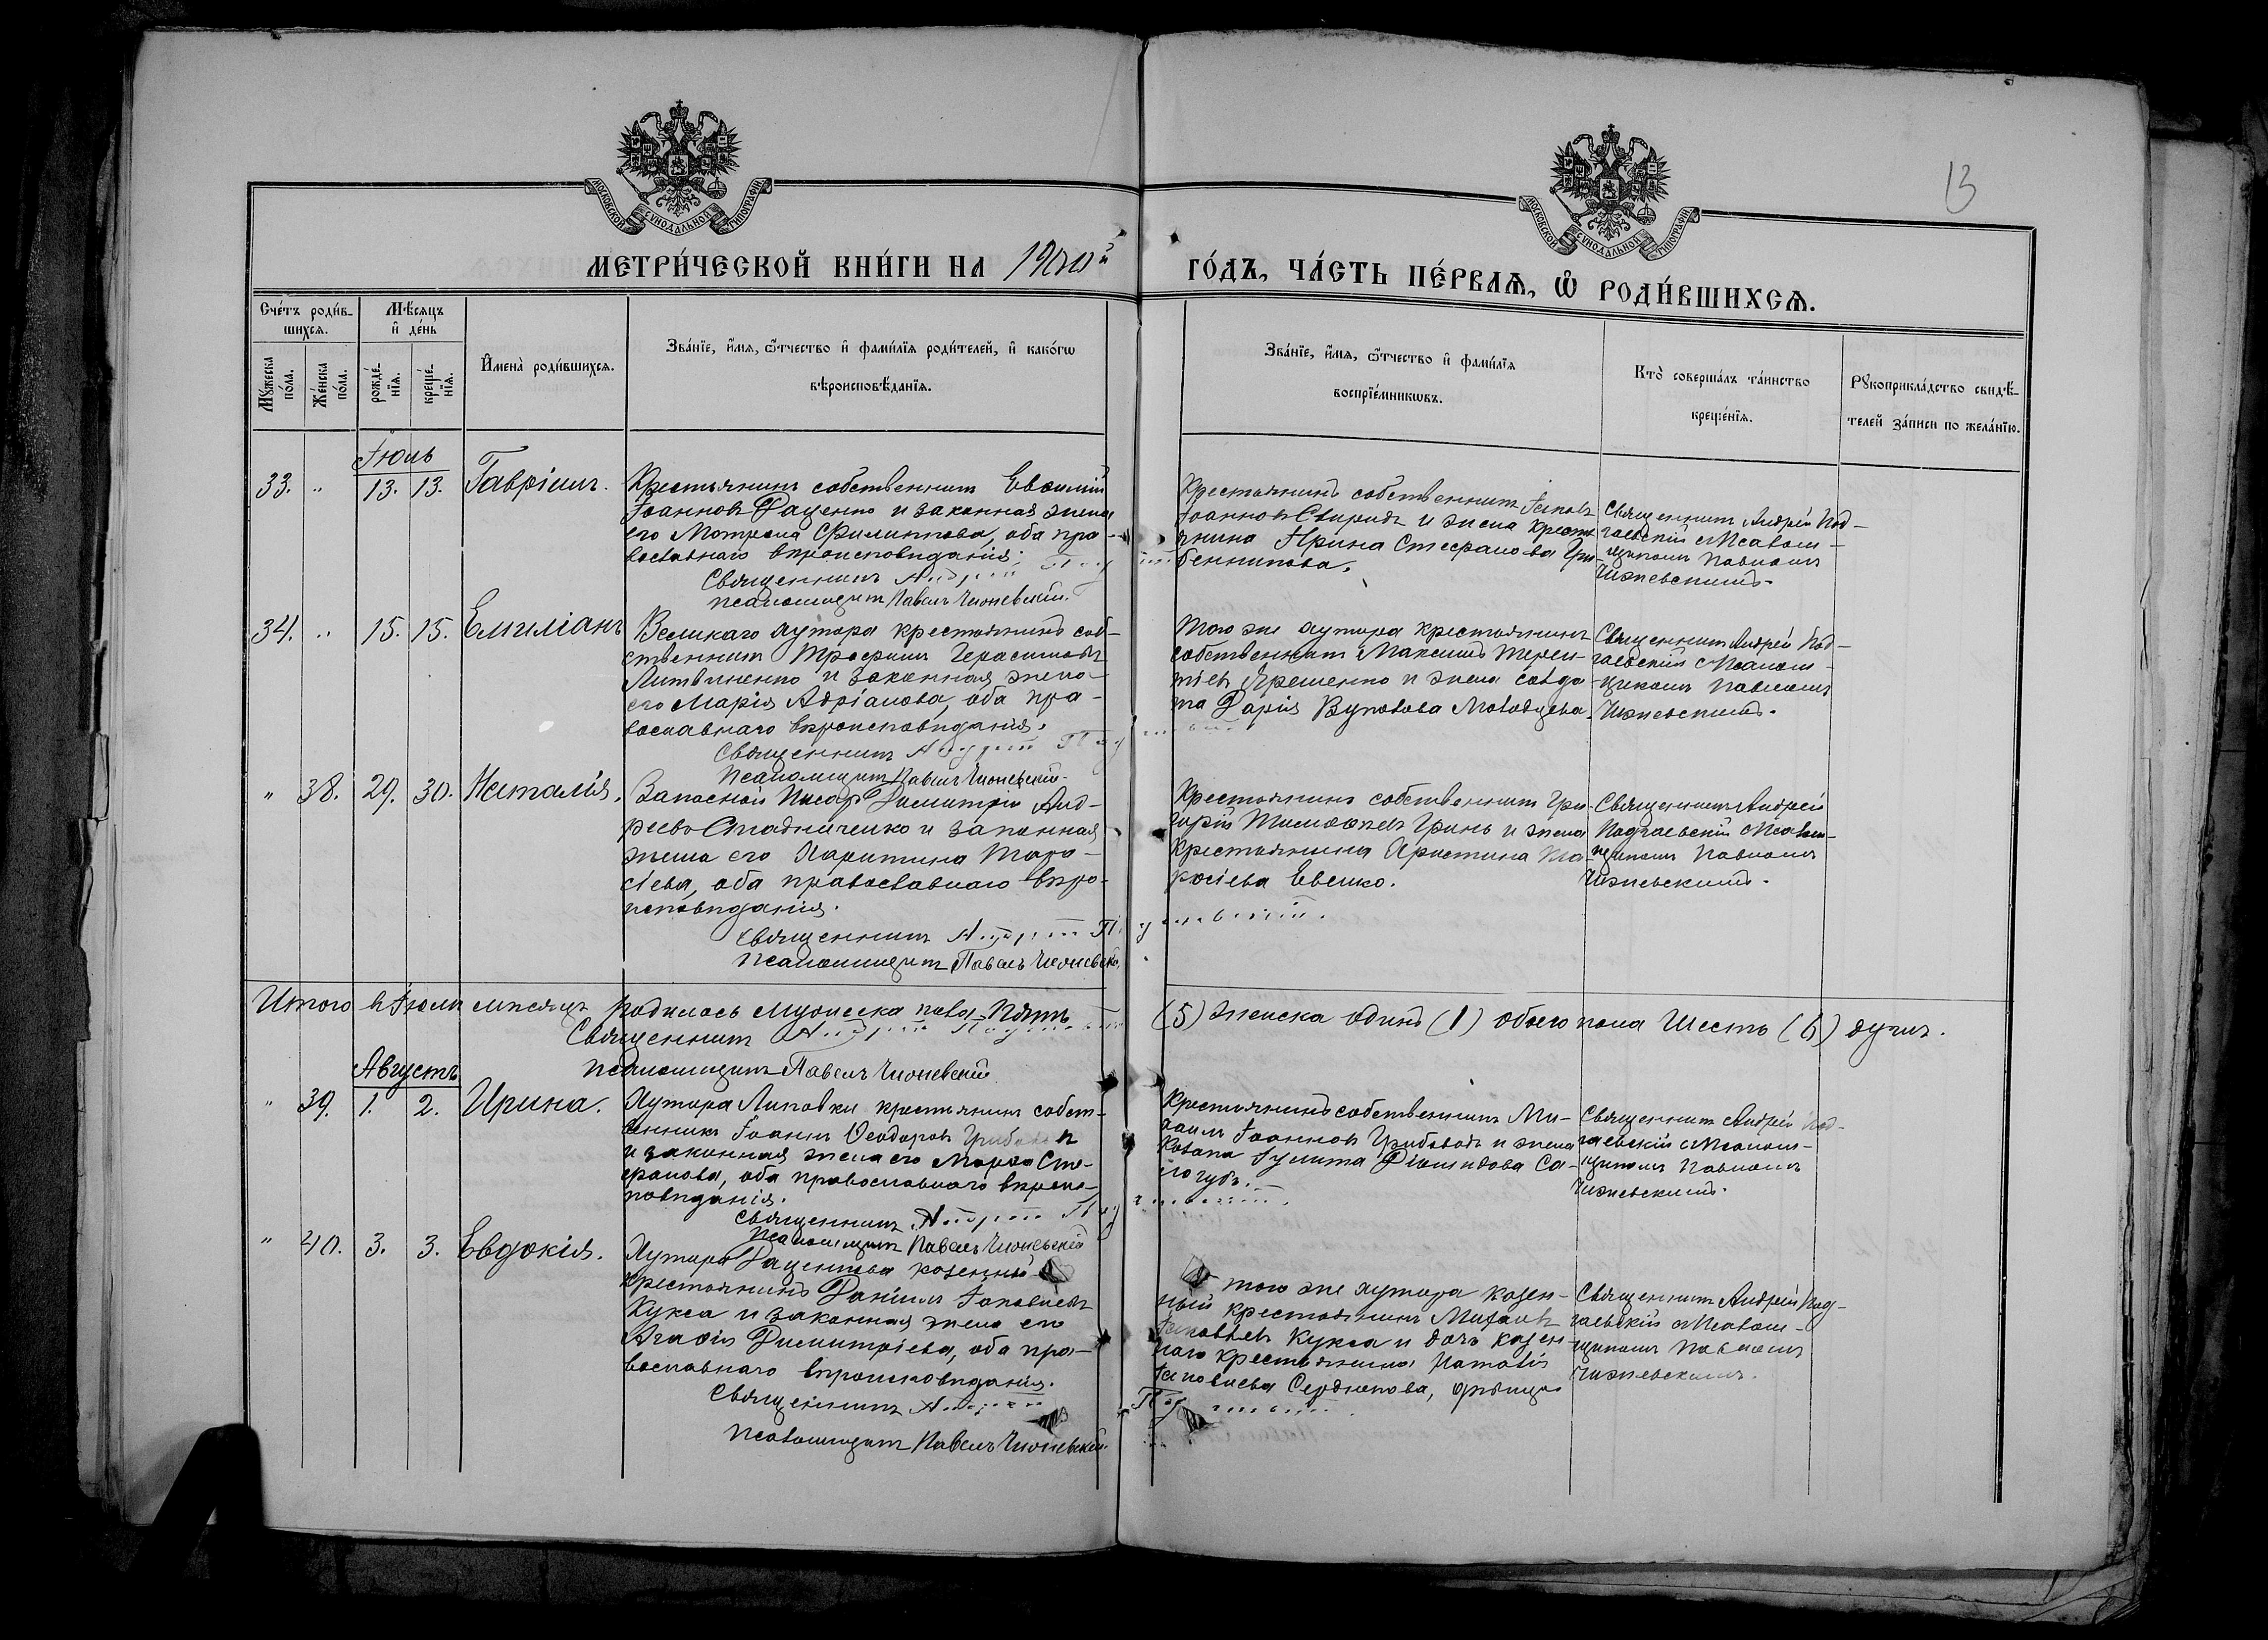 13
МОСКОВСКОЙ СѴНОДАЛЬНОЙ ТИПОГРАФІИ
МОСКОВСКОЙ СѴНОДАЛЬНОЙ ТИПОГРАФІИ
МЕТРИ́ЧЕСКОЙ КНИ́ГИ НА
ГО́ДЪ, ЧА́СТЬ ПЕ́РВАѦ, Ѡ҆ РОДИ́ВШИХСѦ.
Сче́тъ роди́в-
шихсѧ.
Мѣ́сѧцъ
и҆ де́нь
Мꙋ́жеска
по́ла.
Же́нска
по́ла.
рожде́-
нїѧ.
креще́-
нїѧ.
И҆мена̀ роди́вшихсѧ.
Зва́нїе, и҆́мѧ, ѻ҆́тчество и҆ фами́лїѧ роди́телей, и҆ како́гѡ
вѣроисповѣ́данїѧ.
Зва́нїе, и҆́мѧ, ѻ҆́тчество и҆ фами́лїѧ
воспрїе́мникѡвъ.
Кто̀ соверша́лъ та́инство
креще́нїѧ.
Рꙋкоприкла́дство свидѣ́-
телей за́писи по жела́нїю.
Іюль
33. " 13. 13. Гавріилъ.
Крестьянинъ собственникъ Евѳимій
Іоанновъ Даценко и законная жена
его Мотрона Филиппова, оба пра-
вославнаго вѣроисповѣданія.
Священникъ Андрей
Псаломщикъ Павелъ Чижевскій.
Крестьянинъ собственникъ Іаковъ
Іоанновъ Свиридъ и жена крестья-
нина Ирина Стефанова Гре-
бенникова.
Священникъ Андрей Под-
гаевскій съ Псалом-
щикомъ Павломъ
Чижевскимъ.
34. " 15. 15. Емиліанъ
Великаго хутора крестьянинъ соб-
ственникъ Трофимъ Герасимовъ
Литвиненко и законная жена
его Марія Адріанова, оба пра-
вославнаго вѣроисповѣданія.
Священникъ Андрей
Псаломщикъ Павелъ Чижевскій.
Того же хутора крестьянинъ
собственникъ Максимъ Терен-
тіевъ Яременко и жена солда-
та Дарія Вуколова
Священникъ Андрей Под-
гаевскій съ Псалом-
щикомъ Павломъ
Чижевскимъ.
" 38. 29. 30. Наталія.
Запасной Писарь Димитрій Анд-
реевъ Стадниченко и законная
жена его Харитина Тара-
сіева, оба православнаго вѣро-
исповѣданія.
Священникъ Андрей
Псаломщикъ Павелъ Чижевскій.
Крестьянинъ собственникъ Гри-
горій Тимоѳеевъ Гринь и жена
крестьянина Христина Та-
расіева Евенко.
Священникъ Андрей
Подгаевскій съ Псалом-
щикомъ Павломъ
Чижевскимъ.
Итого въ Іюлѣ мѣсяцѣ родилось мужеска пола Пять
(5) женска одинъ (1) обоего пола Шесть (6) душъ.
Священникъ Андрей
Псаломщикъ Павелъ Чижевскій
Августъ
" 39. 1. 2. Ирина.
Хутора Липовки крестьянинъ собст-
венникъ Іоаннъ Ѳеодоровъ
и законная жена его Марѳа Сте-
фанова, оба православнаго вѣроис-
повѣданія.
Священникъ Андрей
Псаломщикъ Павелъ Чижевскій
Крестьянинъ собственникъ Ми-
хаилъ Іоанновъ и жена
козака Іулита Діомидова Са-
Священникъ Андрей Под-
гаевскій съ Псалом-
щикомъ Павломъ
Чижевскимъ.
" 40. 3. 3. Евдокія.
Хутора Даценкова казенный
крестьянинъ Даніилъ Іаковлевъ
Кукса и законная жена его
Агаѳія Димитріева, оба пра-
вославнаго вѣроисповѣданія.
Священникъ Андрей
Псаломщикъ Павелъ Чижевскій.
того же хутора казен-
ный крестьянинъ Михаилъ
Іаковлевъ Кукса и дочь казен-
наго крестьянина Наталія
Іаковлева Сердюкова, дѣвица
Священникъ Андрей Под-
гаевскій съ Псалом-
щикомъ Павломъ
Чижевскимъ.